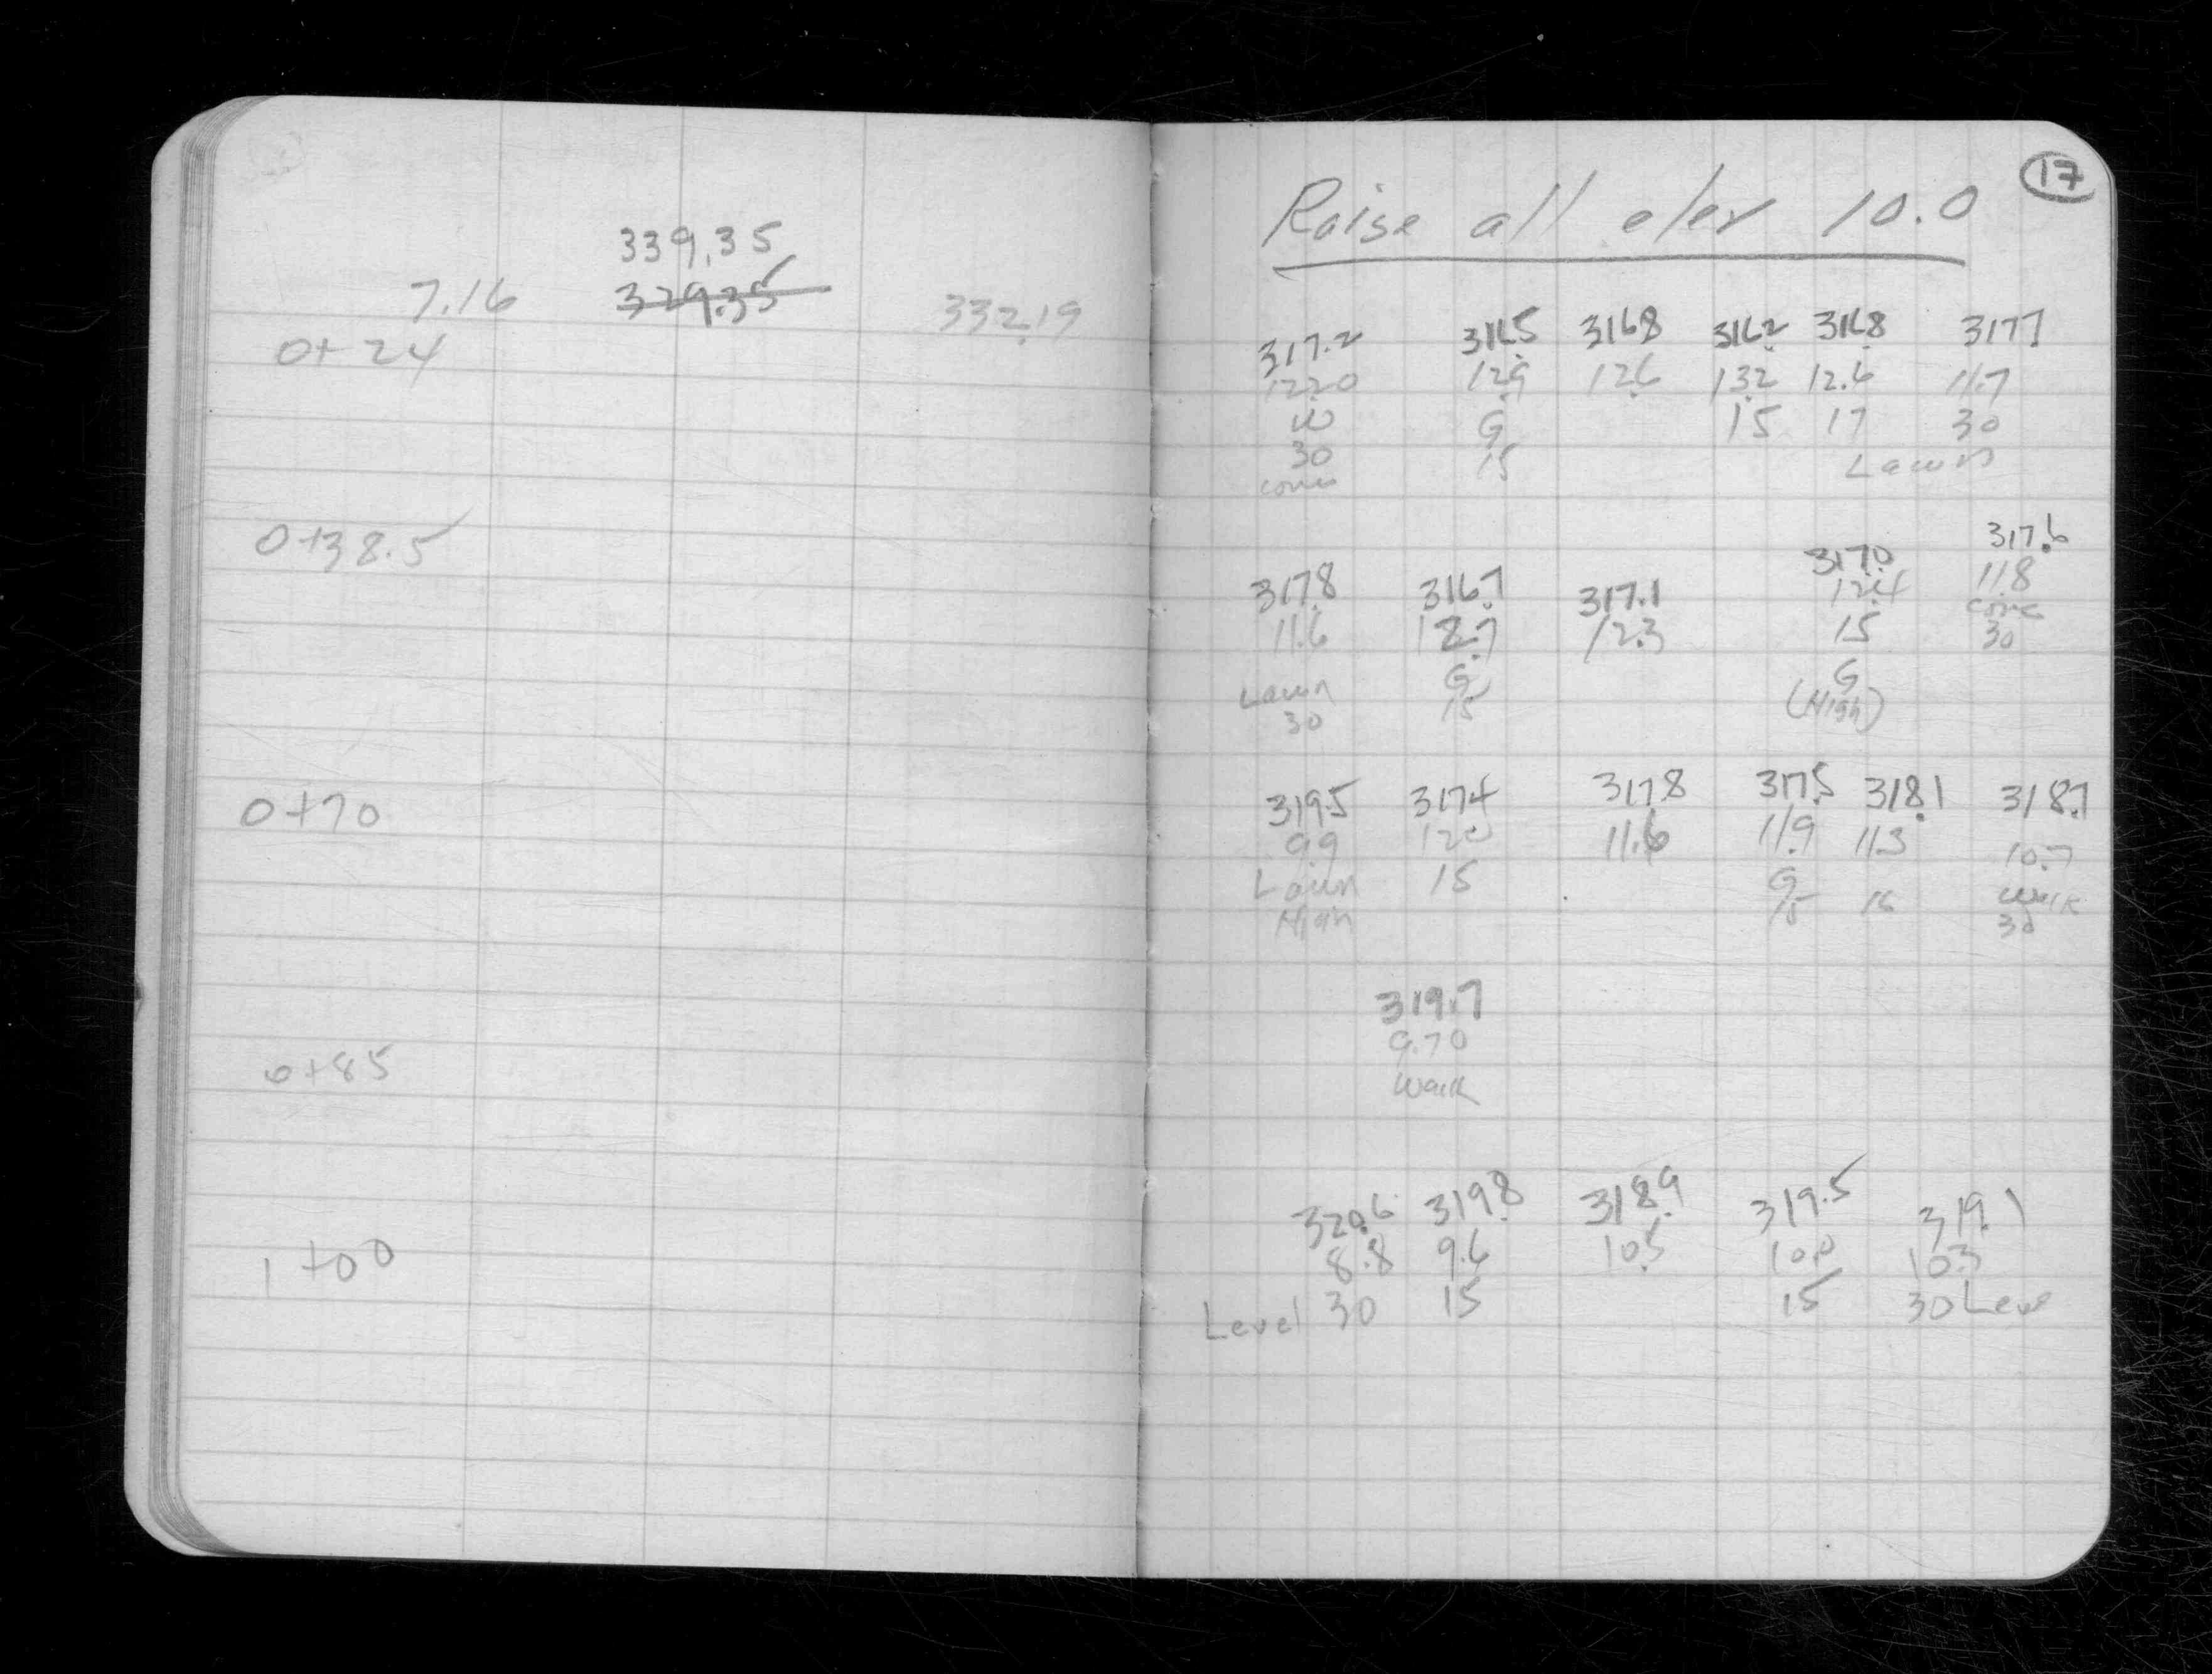 339.35
7.16 329.35 332.19
0+24
0+38.5
0+70
0+85
1+00
17
Raise all elev 10.0
317.2 316.5 316.8 316.2 316.8 317.7
12.20 12.9 12.6 13.2 12.6 11.7
W G 15 17 30
30 15 Lawn
conc
317.8 316.7 317.1 317.0 317.6
11.6 12.7 12.3 12.4 11.8
Lawn G 15 conc
30 15 G 30
(High)
319.5 317.4 317.8 317.5 318.1 318.7
9.9 12.0 11.6 11.9 11.3 10.7
Lawn 15 G 16 walk
High 15 30
319.7
9.70
Walk
320.6 319.8 318.9 319.5 319.1
8.8 9.6 10.5 10.0 10.3
Level 30 15 15 30 Leve